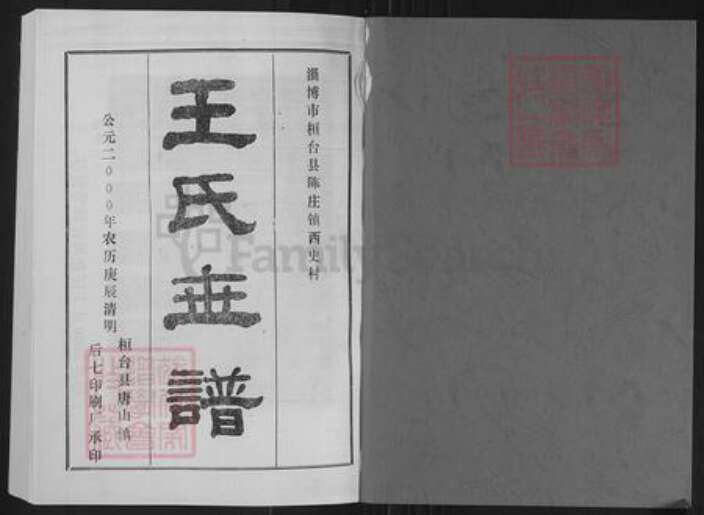 淄博市桓台县陈庄镇西史村
王氏世譜
公元二000年农历庚辰清明
桓台县唐山镇
后七印刷厂承印
FamilySearch